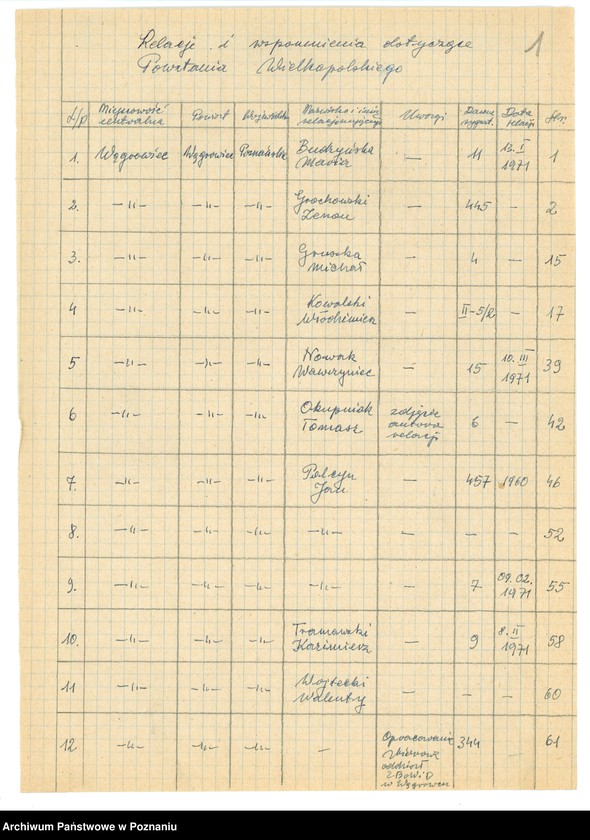 1
Relacje i wspomnienia dotyczące
Powstania Wielkopolskiego
L/p Miejscowość centralna Powiat Województwo Nazwisko i imię relacjonującego Uwagi Dawna sygnat. Data relacji Str.
1. Wągrowiec Wągrowiec Poznańskie Budzyńska Maria — 11 12.I 1971 1
2. —"— —"— —"— Grochowski Zenon — 445 — 2
3. —"— —"— —"— Gruszka Michał — 4 — 15
4 —"— —"— —"— Kowalski Włodzimierz — II-5/2 — 17
5 —"— —"— —"— Nowak Wawrzyniec — 15 10.III 1971 39
6 —"— —"— —"— Okupniak Tomasz zdjęcie autora relacji 6 — 42
7. —"— —"— —"— Palcyn Jan — 457 1960 46
8. —"— —"— —"— —"— — — — 52
9. —"— —"— —"— —"— — 7 09.02. 1971 55
10. —"— —"— —"— Tramowski Kazimierz — 9 8.II 1971 58
11 —"— —"— —"— Wojtecki Walenty — — — 60
12 —"— —"— —"— — Opracowanie zbiorowe oddział ZBoWiD w Wągrowcu 344 — 61
Archiwum Państwowe w Poznaniu